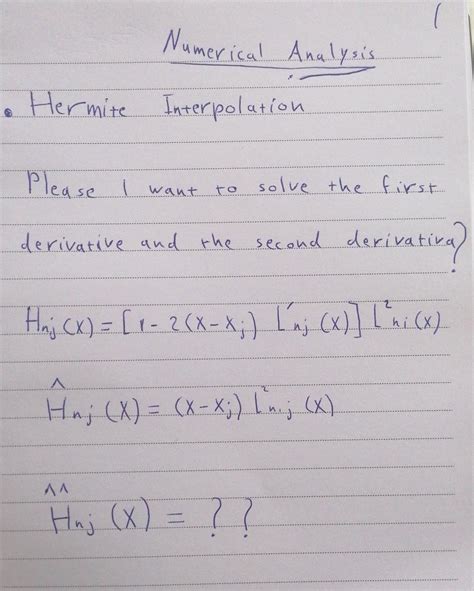 1
Numerical Analysis
• Hermite Interpolation
Please I want to solve the first
derivative and the second derivativa?
Hnj(x) = [1 - 2(x-xj) L'nj(x)] L²ni(x)
Ĥnj(x) = (x-xj) L²n.j(x)
^^
Hnj(x) = ? ?